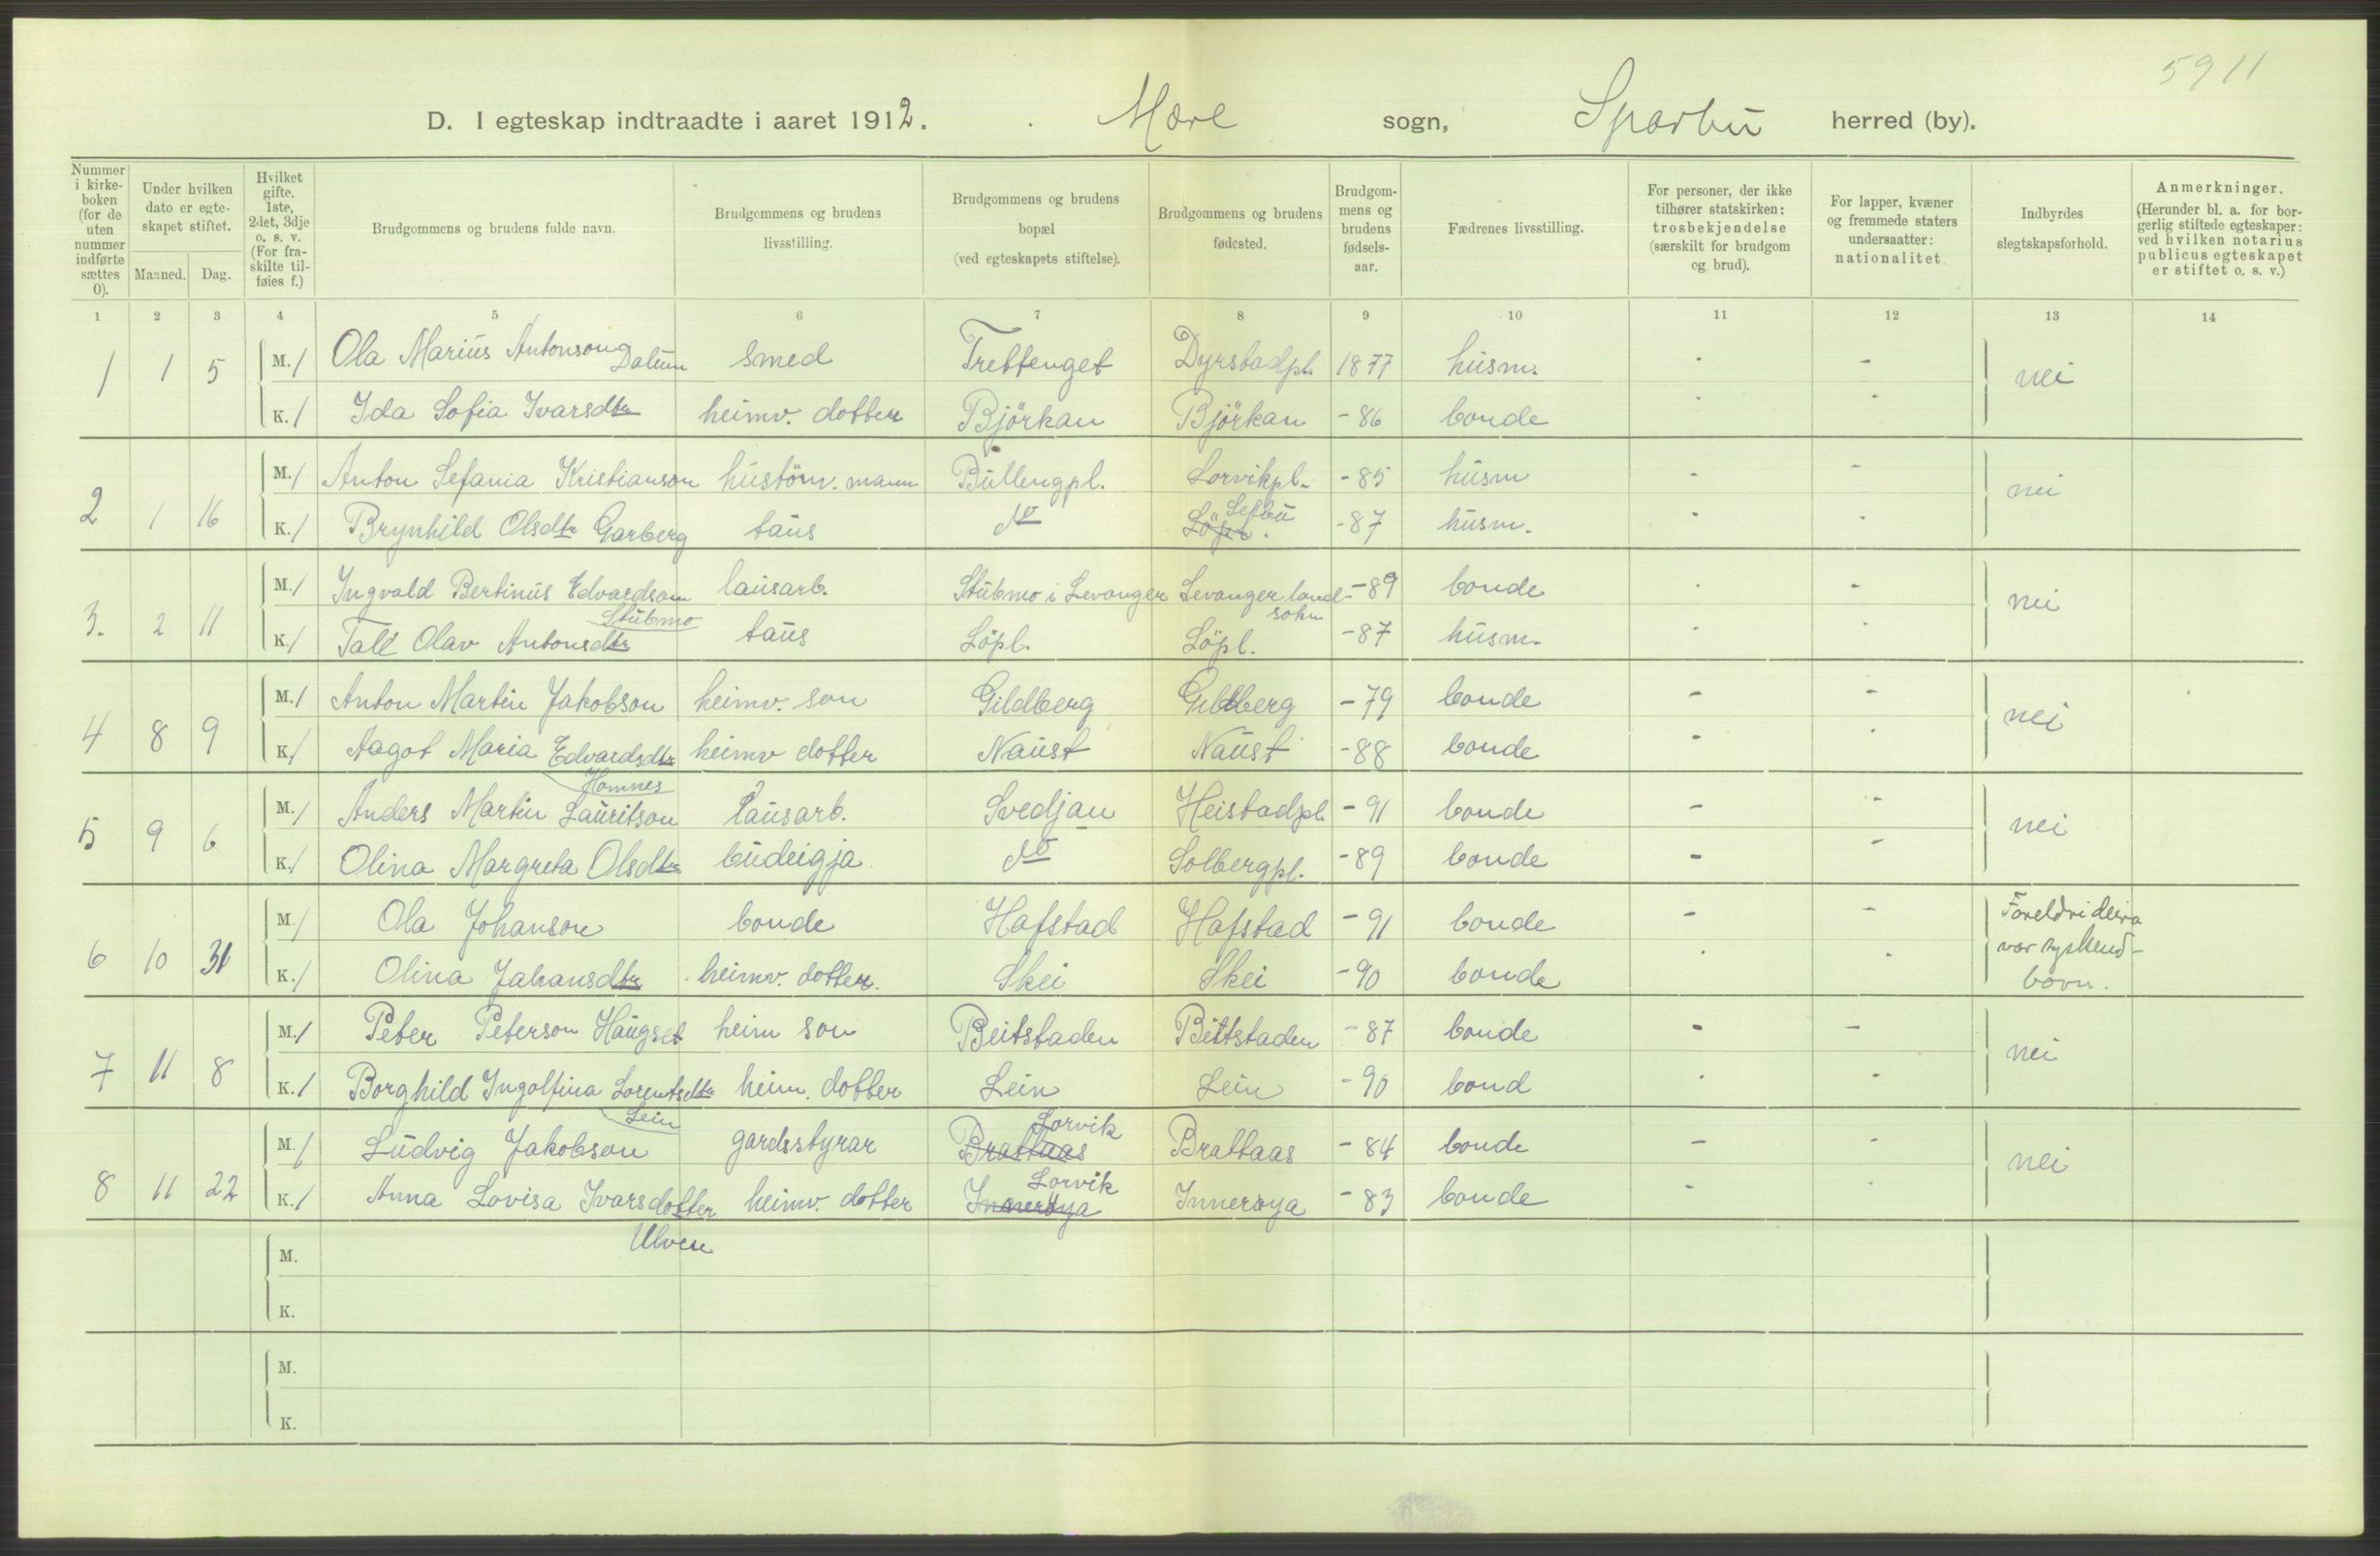 5911
D. I egteskap indtraadte i aaret 1912. Mære sogn, Sparbu herred (by).
Nummer i kirkeboken (for de uten nummer indførte sættes 0).
Under hvilken dato er egteskapet stiftet.
Maaned. Dag.
Hvilket gifte. 1ste, 2det, 3dje o. s. v. (For fraskilte tilføies f.)
Brudgommens og brudens fulde navn.
Brudgommens og brudens livsstilling.
Brudgommens og brudens bopæl (ved egteskapets stiftelse).
Brudgommens og brudens fødested.
Brudgommens og brudens fødselsaar.
Fædrenes livsstilling.
For personer, der ikke tilhører statskirken: trosbekjendelse (særskilt for brudgom og brud).
For lapper, kvæner og fremmede staters undersaatter: nationalitet
Indbyrdes slegtskapsforhold.
Anmerkninger. (Herunder bl. a. for borgerlig stiftede egteskaper: ved hvilken notarius publicus egteskapet er stiftet o. s. v.)
1 2 3 4 5 6 7 8 9 10 11 12 13 14
1 1 5 M. / Ola Marius Antonson Dalum smed Trettenget Dyrstadpl. 1877 husm. - - nei
K. / Ida Sofia Ivarsdtr heimv. dotter Björkan Björkan -86 bonde - -
2 1 16 M. / Anton Sefania Kristianson hustömr. mann Bullengpl. Lorvikpl. -85 husm - - nei
K. / Brynhild Olsdtr Garberg taus do Löpl. Selbu -87 husm. - -
3. 2 11 M. / Ingvald Bertinus Edvardson Stubmo lausarb. Stubmo i Levanger Levanger landsokn -89 bonde - - nei
K. / Tale Olav Antonsdtr taus Löpl. Löpl. -87 husm. - -
4 8 9 M. / Anton Martin Jakobson heimv. son Gildberg Gildberg -79 bonde - - nei
K. / Aagot Maria Edvardsdtr Homnes heimv dotter Naust Naust -88 bonde - -
5 9 6 M. / Anders Martin Lauritson lausarb. Svedjan Heistadpl. -91 bonde - - nei
K. / Olina Margreta Olsdtr budeigja do Solbergpl. -89 bonde - -
6 10 31 M. / Ola Johanson bonde Hafstad Hafstad -91 bonde - - Foreldri deira var syskendborn.
K. / Olina Johansdtr heimv. dotter. Skei Skei -90 bonde - -
7 11 8 M. / Peter Peterson Haugset heim son Beitstaden Beitstaden -87 bonde - - nei
K. / Borghild Ingolfina Lorentsdtr Lein heim. dotter Lein Lein -90 bond - -
8 11 22 M. / Ludvig Jakobson gardsstyrar Brattaas Lorvik Brattaas -84 bonde - - nei
K. / Anna Lovisa Ivarsdotter Ulven heimv. dotter Inneröya Lorvik Inneröya -83 bonde - -
M.
K.
M.
K.